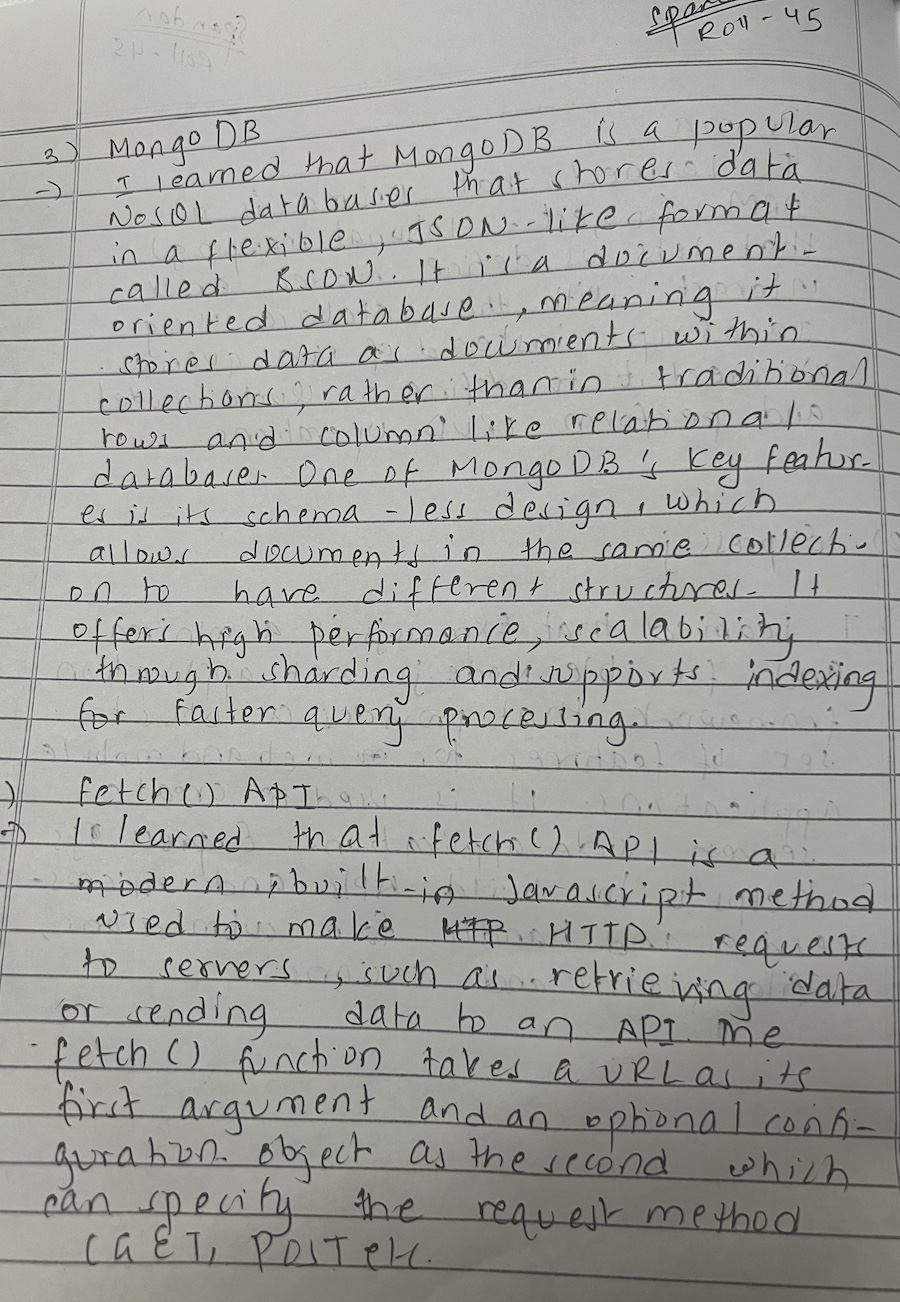 Roll - 45
3) MongoDB
-) I learned that MongoDB is a popular
NoSQL databases that stores data
in a flexible, JSON-like format
called BSON. It is a document-
oriented database, meaning it
stores data as documents within
collections, rather than in traditional
rows and column like relational
databases. One of MongoDB's key featur-
es is its schema-less design, which
allows documents in the same collecti-
on to have different structures. It
offers high performance, scalability
through sharding and supports indexing
for faster query processing.
) Fetch() API
-) I learned that fetch() API is a
modern, built-in Javascript method
used to make HTTP requests
to servers, such as retrieving data
or sending data to an API. The
fetch() function takes a URL as its
first argument and an optional confi-
guration object as the second which
can specify the request method
(GET, POST etc.